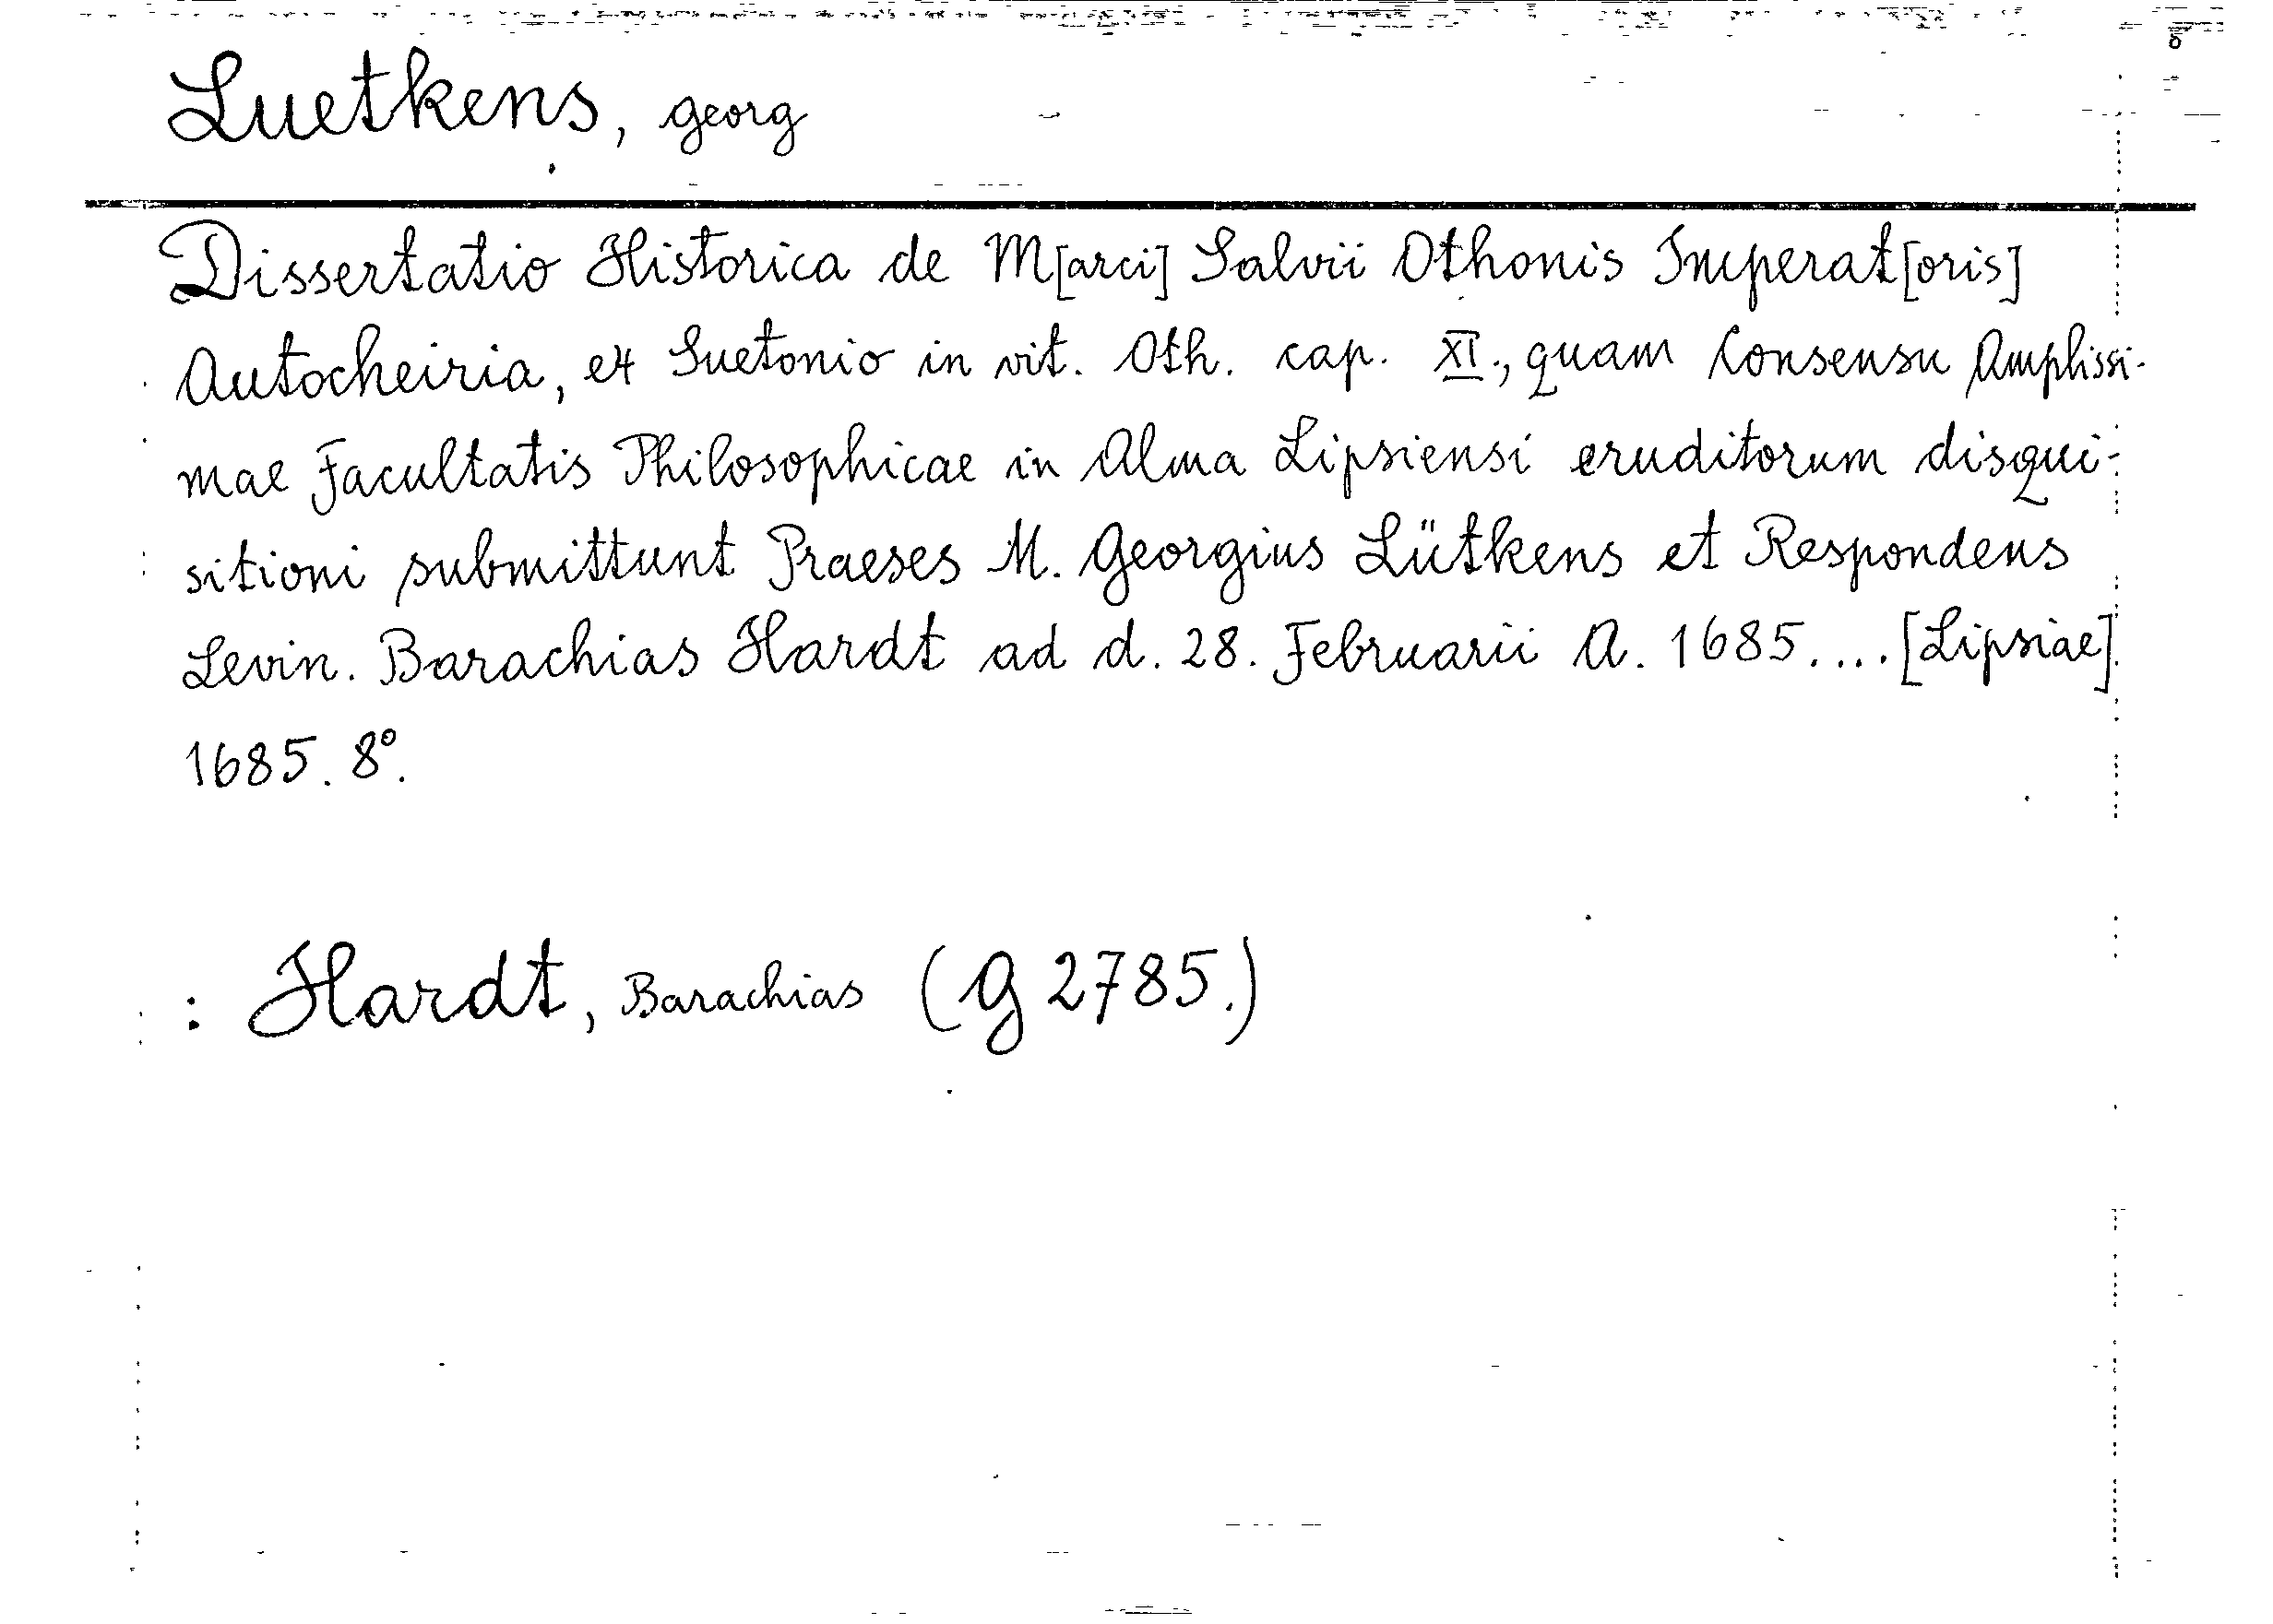 Luetkens, Georg
Dissertatio Historica de M[arci] Salvii Othonis Imperat[oris]
Autocheiria, ex Suetonio in vit. Oth. cap. XI., quam Consensu Amplissi-
mae Facultatis Philosophicae in Alma Lipsiensi eruditorum disqui-
sitioni submittunt Praeses M. Georgius Lütkens et Respondens
Levin. Barachias Hardt ad d. 28. Februarii A. 1685.... [Lipsiae]
1685. 8°.
: Hardt, Barachias (G 2785.)